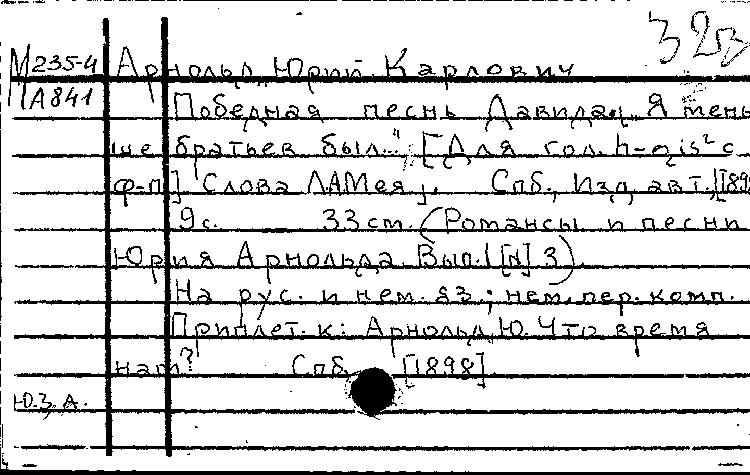 32в
М235-4 Арнольд, Юрий Карлович
А841
Победная песнь Давида: „Я мень-
ше братьев был..." [Для гол. h-gis² с
ф-п]. Слова ЛАМея. Спб., Изд. авт., [189
9 с. 33 см. (Романсы и песни
Юрия Арнольда. Вып. I [№] 3).
На рус. и нем. яз.; нем. пер. комп.
Приплет. к: Арнольд, Ю. Что время
нам? Спб. [1898].
Ю.З.А.